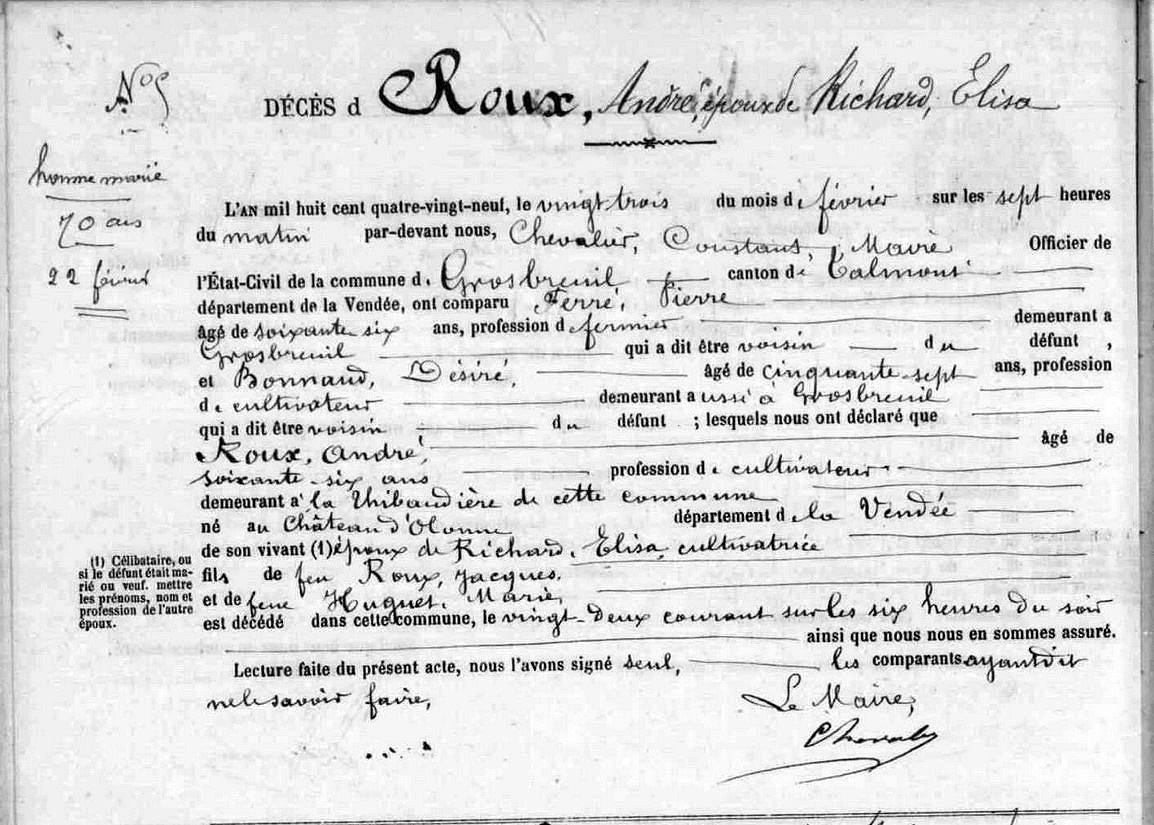 N° 5
DÉCÈS d Roux, André, époux de Richard, Elisa
homme marié
70 ans
22 février
L'AN mil huit cent quatre-vingt-neuf, le vingt trois du mois de février sur les sept heures
du matin par-devant nous, Chevalier, Constant, Maire Officier de
l'État-Civil de la commune de Grosbreuil canton de Talmont
département de la Vendée, ont comparu Ferré, Pierre
âgé de soixante six ans, profession de fermier demeurant a
Grosbreuil qui a dit être voisin du défunt ,
et Bonnaud, Désiré, âgé de cinquante-sept ans, profession
de cultivateur demeurant aussi à Grosbreuil
qui a dit être voisin du défunt ; lesquels nous ont déclaré que
Roux, André, âgé de
soixante-six ans profession de cultivateur
demeurant à la Thibaudière de cette commune
né au Château d'Olonne département de la Vendée
de son vivant (1) époux de Richard, Elisa, cultivatrice
fils de feu Roux, Jacques,
et de feue Huguet, Marie,
est décédé dans cette commune, le vingt-deux courant sur les six heures du soir
ainsi que nous nous en sommes assuré.
Lecture faite du présent acte, nous l'avons signé seul, les comparants ayant dit
ne le savoir faire,
Le Maire,
Chevalier
(1) Célibataire, ou
si le défunt était ma-
rié ou veuf. mettre
les prénoms, nom et
profession de l'autre
époux.